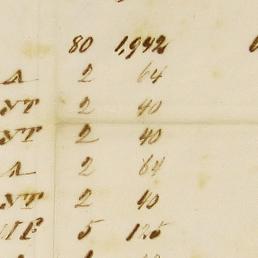 80 1,942
A 2 64
NT 2 40
NT 2 40
A 2 64
NT 2 40
5 125